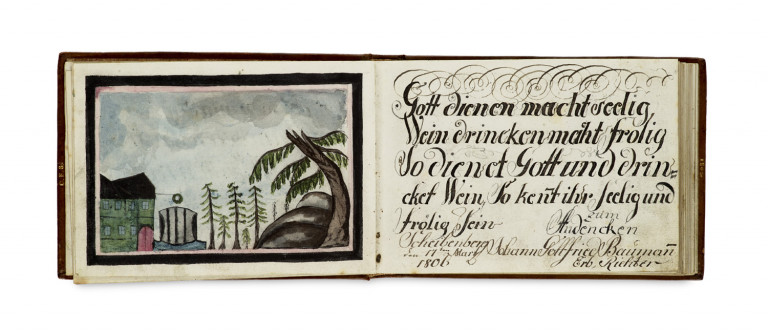 Gott dienen macht seelig
Wein drincken maht frölig
So dienet Gott und drin=
cket Wein, So ken̄t ihr Seelig und
frölig Sein
zum
Andencken
Scheibenberg
den 17ten Mart
1806
Johann Gottfried Bauman̄
Erb. Richter